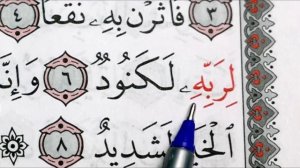 ٣ فَأَثَرْنَ بِهِۦ نَقْعًا ٤
لِرَبِّهِۦ لَكَنُودٌ ٦ وَإِنَّ
لَشَدِيدٌ ٨